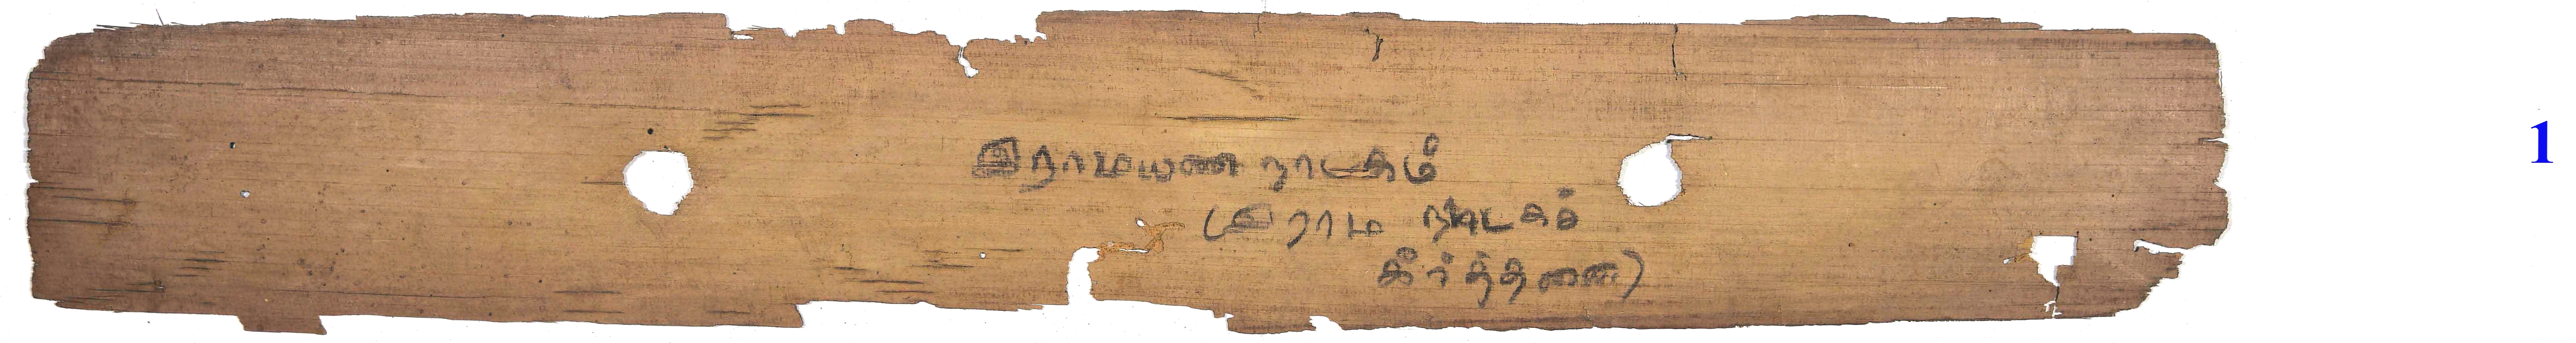 இராமயண நாடகம்
(இராம நாடகக்
கீர்த்தனை)
1